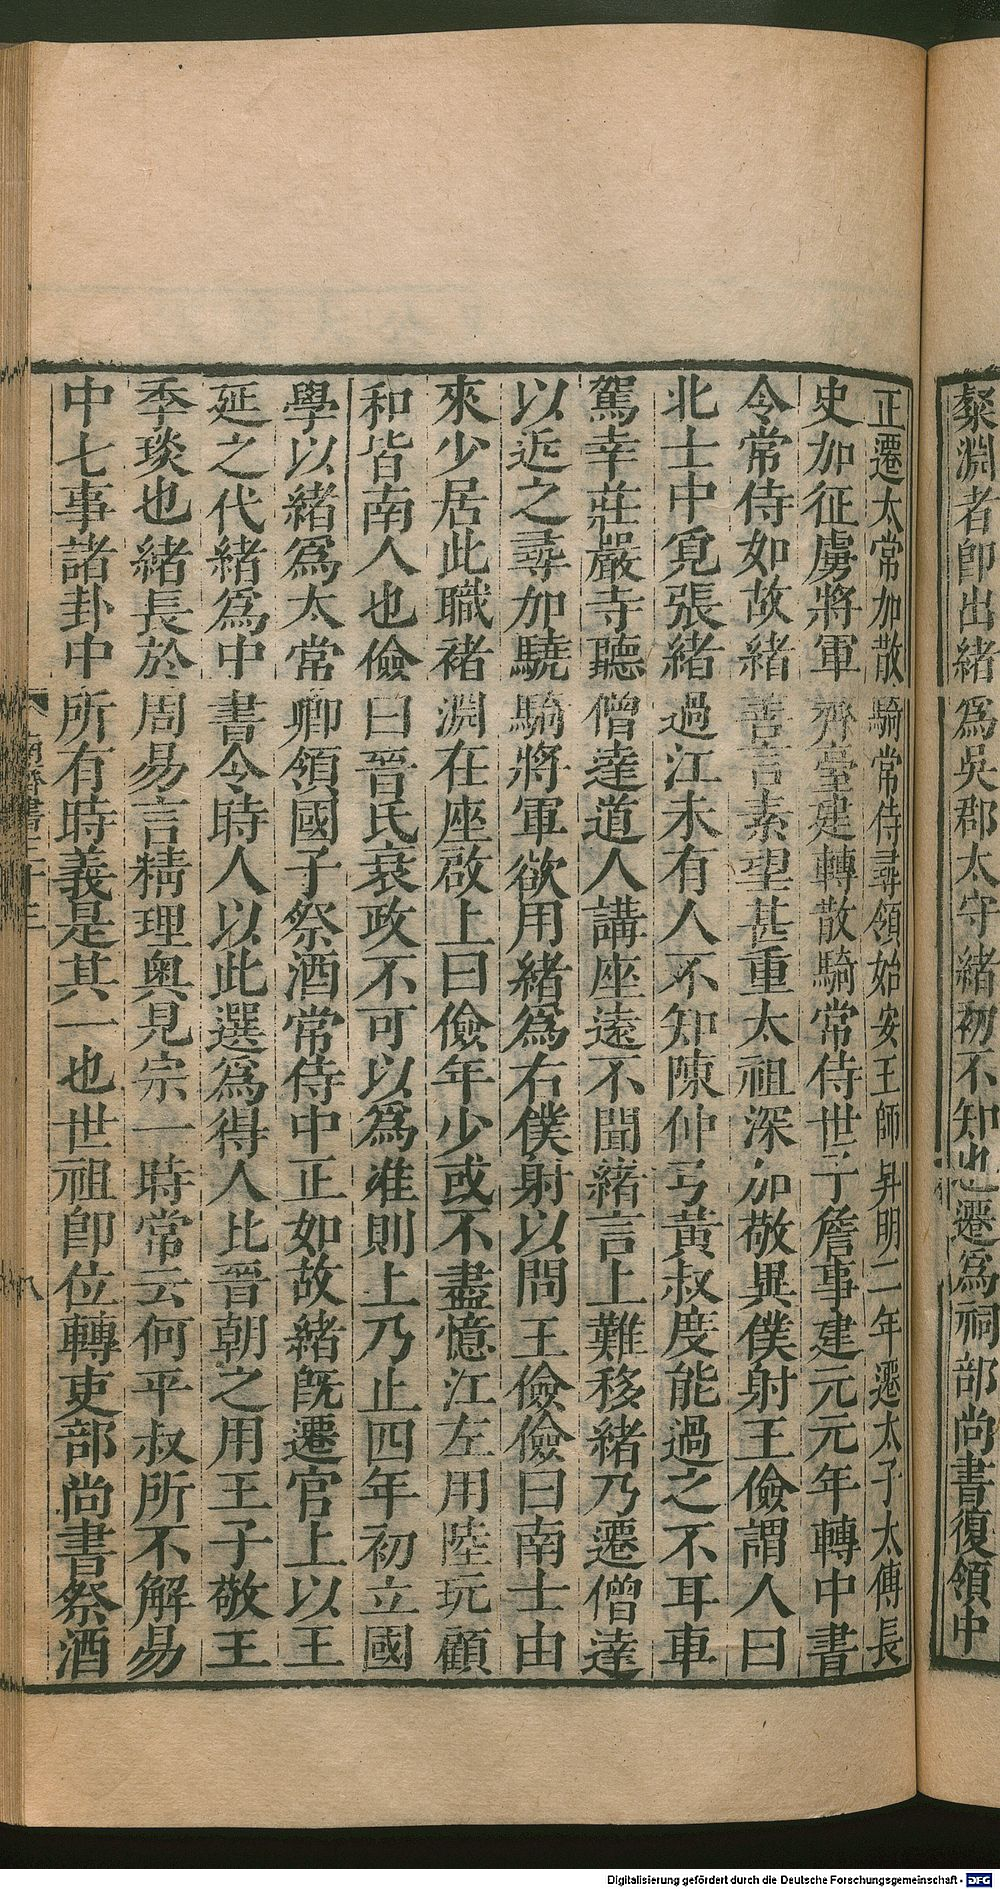 粲淵者卽出緒爲吳郡太守緒初不知也遷爲祠部尚書復領中
正遷太常加散騎常侍尋領始安王師昇明二年遷太子太傅長
史加征虜將軍齊臺建轉散騎常侍世子詹事建元元年轉中書
令常侍如故緒善言素望甚重太祖深加敬異僕射王儉謂人曰
北士中覓張緒過江未有人不知陳仲弓黃叔度能過之不耳車
駕幸莊嚴寺聽僧達道人講座遠不聞緒言上難移緒乃遷僧達
以近之尋加驍騎將軍欲用緒爲右僕射以問王儉儉曰南士由
來少居此職褚淵在座啟上曰儉年少或不盡憶江左用陸玩顧
和皆南人也儉曰晉氏衰政不可以爲准則上乃止四年初立國
學以緒爲太常卿領國子祭酒常侍中正如故緒旣遷官上以王
延之代緒爲中書令時人以此選爲得人比晉朝之用王子敬王
季琰也緒長於周易言精理奧見宗一時常云何平叔所不解易
中七事諸卦中所有時義是其一也世祖卽位轉吏部尚書祭酒
南齊書三十三
八
Digitalisierung gefördert durch die Deutsche Forschungsgemeinschaft - DFG